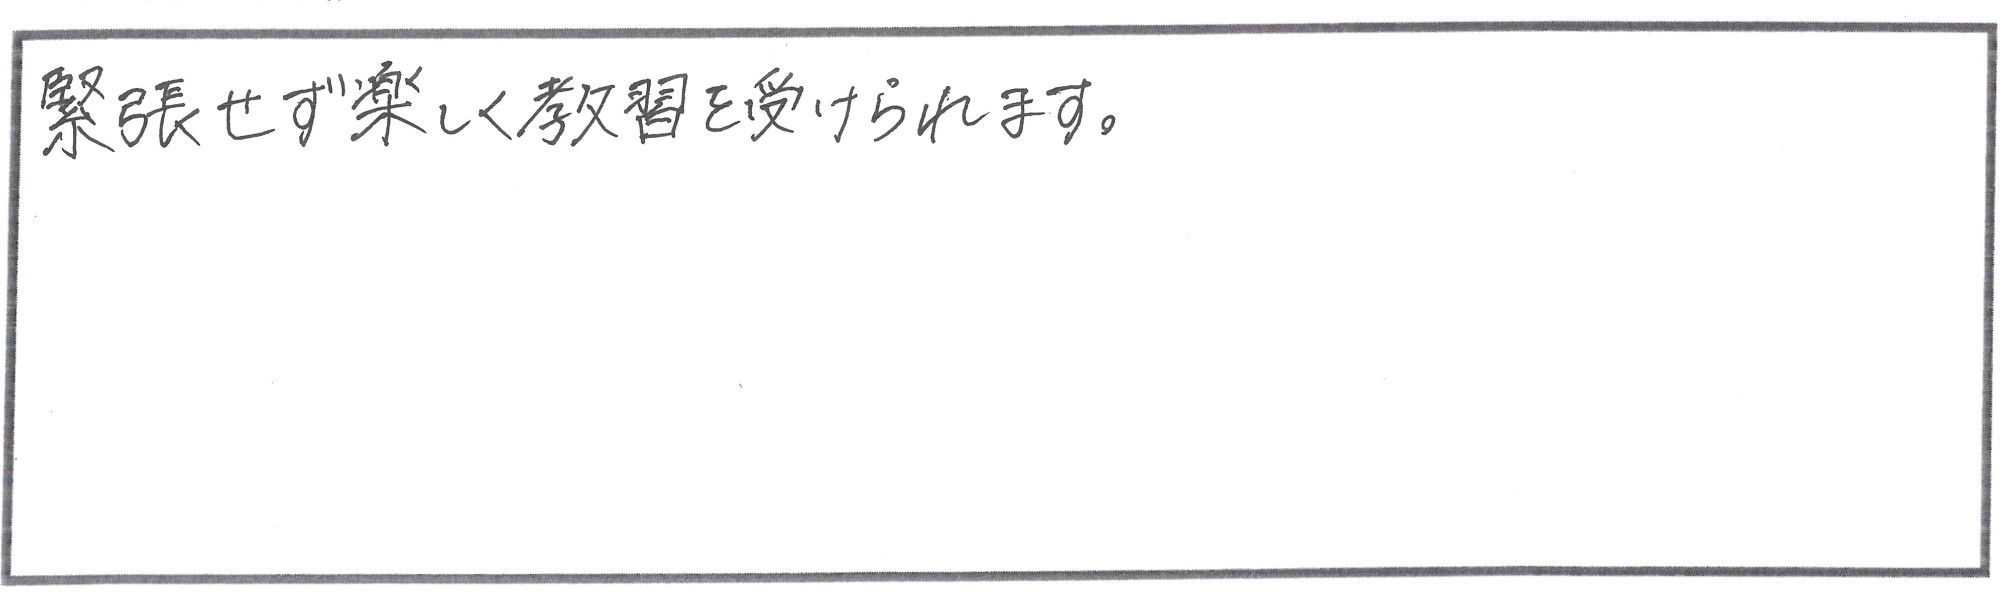 緊張せず楽しく教習を受けられます。